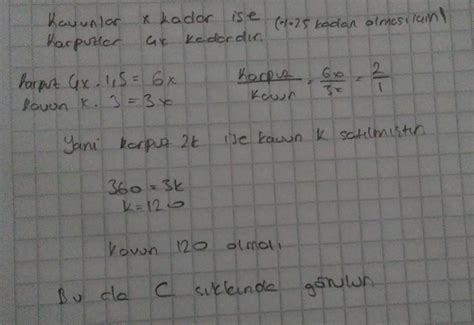 Kavunlar x kadar ise (%25 kadarı olması için)
Karpuzlar 4x kadardır.
Karpuz 4x . 1,5 = 6x
Kavun x . 3 = 3x
Karpuz / Kavun = 6x / 3x = 2 / 1
Yani karpuz 2k ise kavun k satılmıştır
360 = 3k
k = 120
Kavun 120 olmalı
Bu da C şıkkında görülür